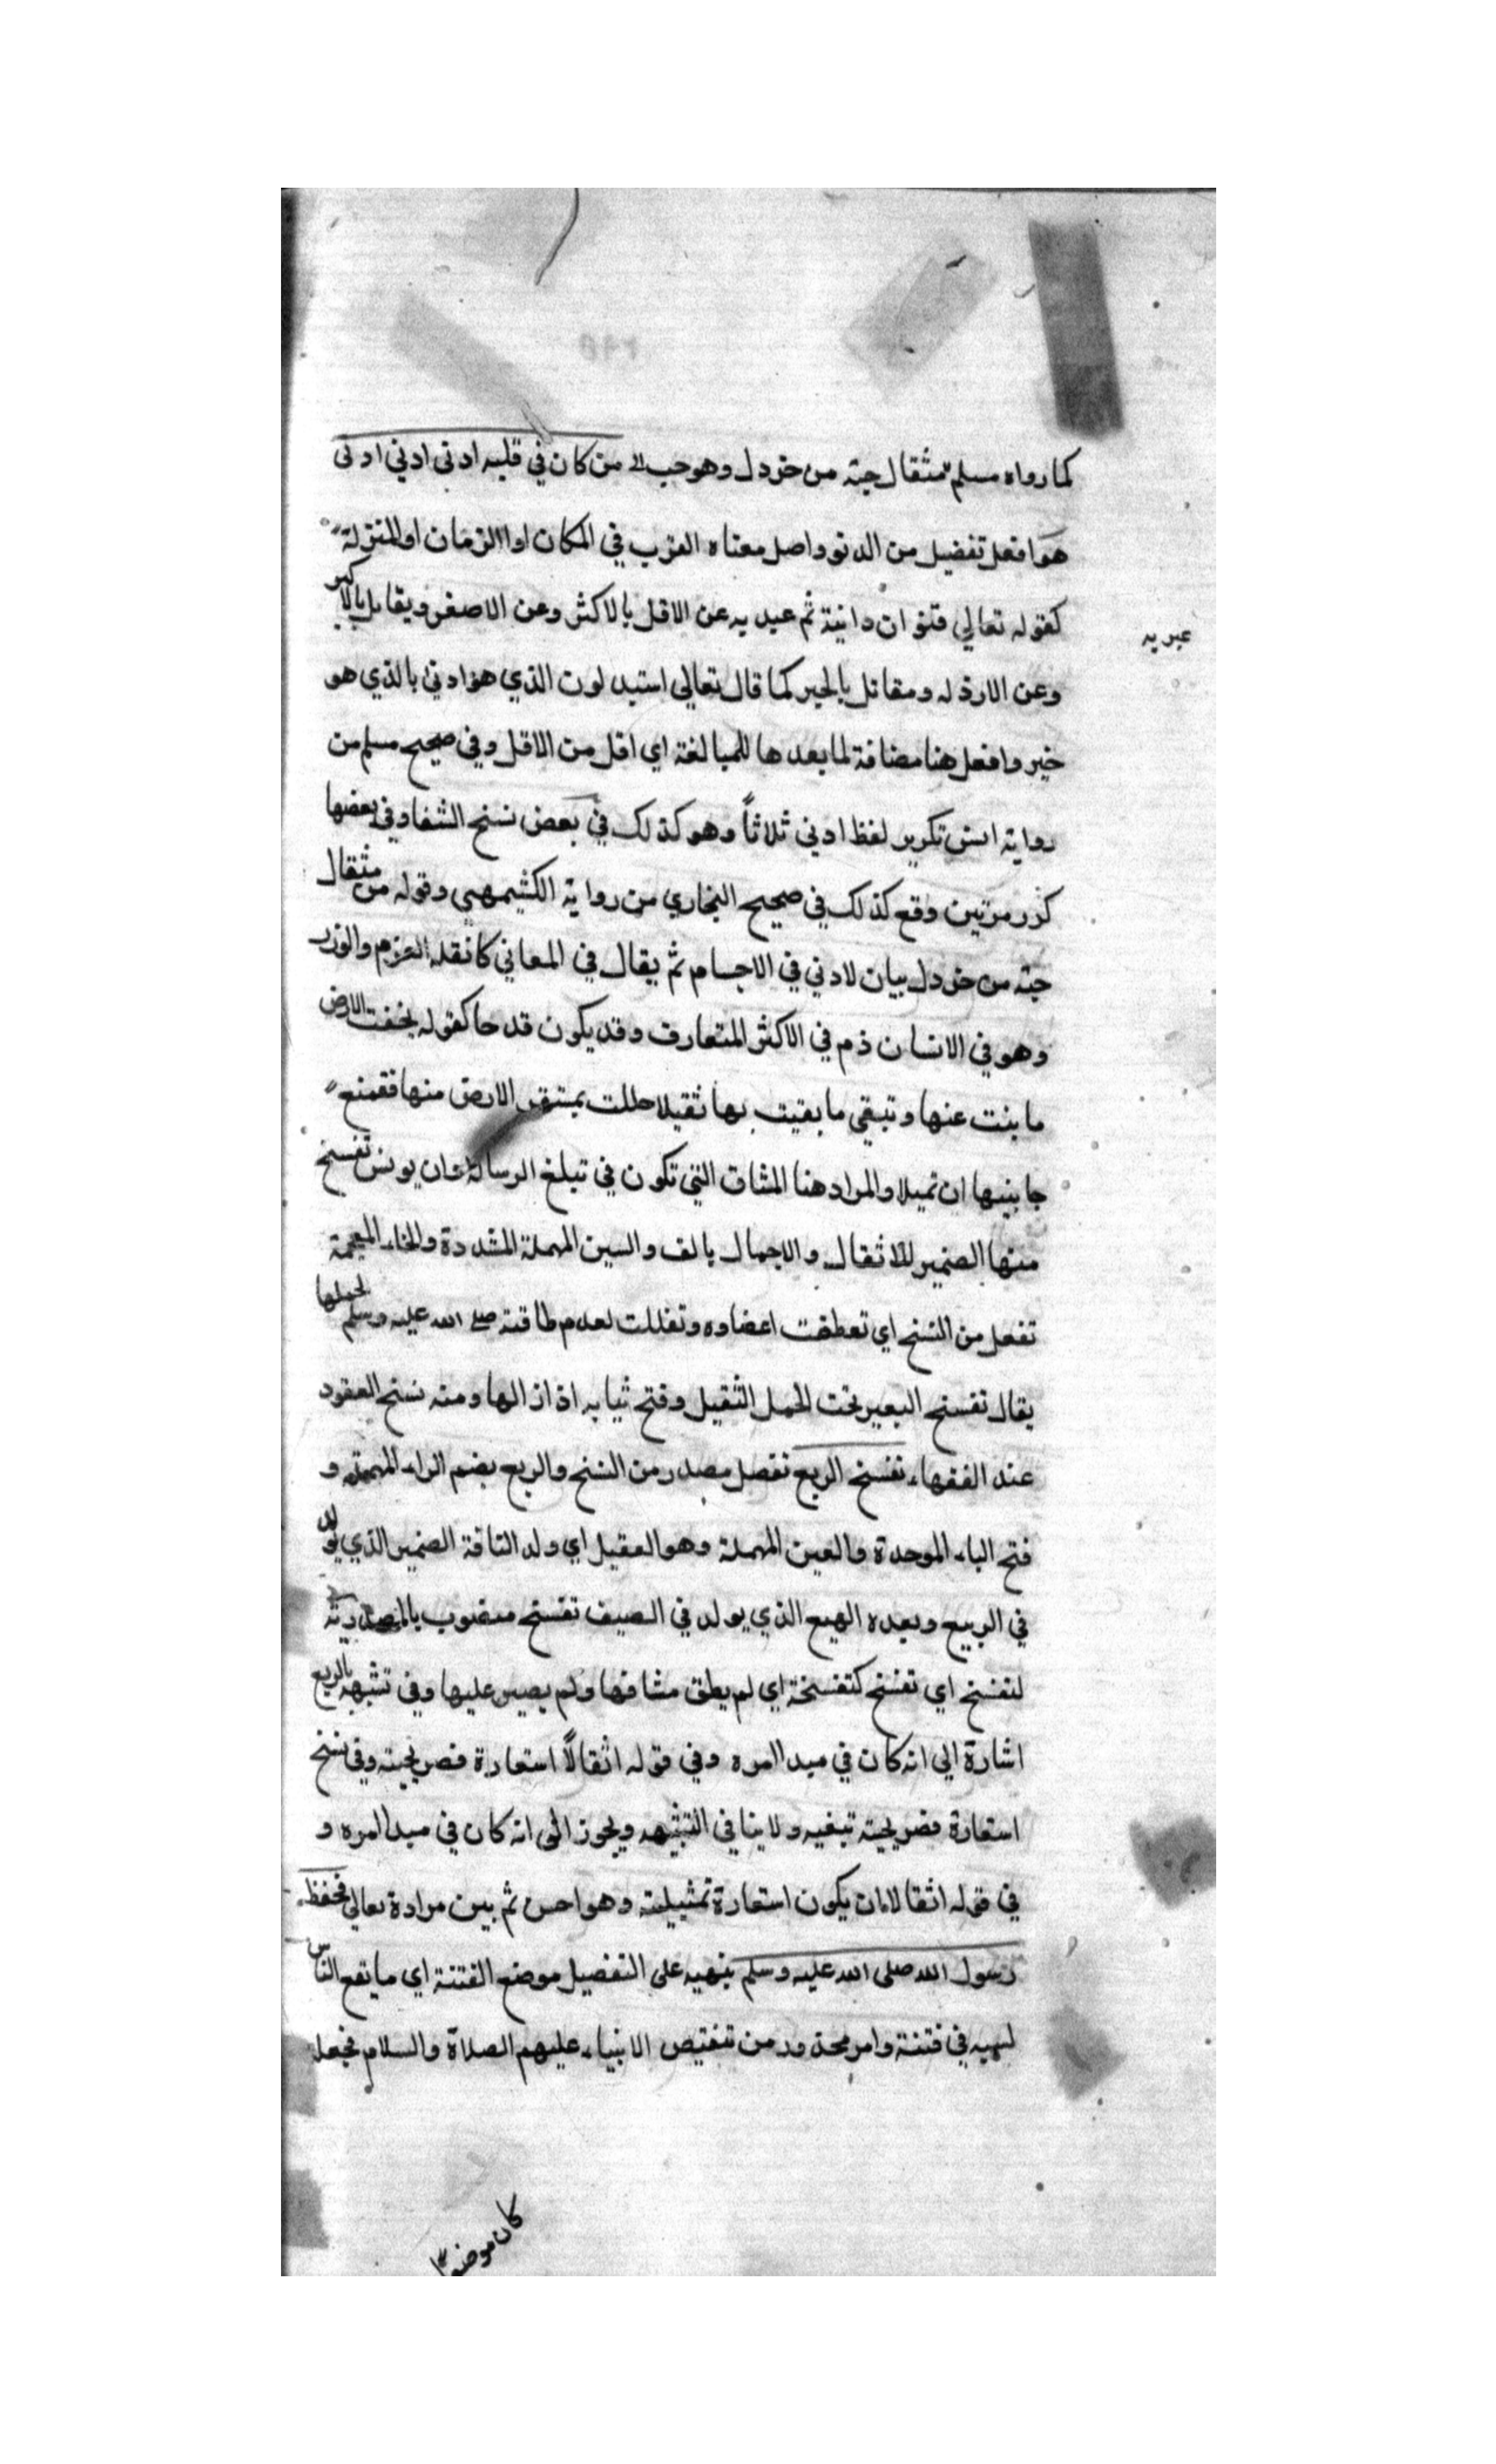 كما رواه مسلم مثقال حبة من خردل وهو حب لا من كان في قلبه ادنى ادنى ادنى
هو افعل تفضيل من الدنو واصل معناه القرب في المكان او الزمان او المنزلة
كقوله تعالي قنوان دانية ثم عبد به عن الاقل بالاكثر وعن الاصغر ويقابل بالاكبر
عبر به
وعن الارذله ومقابل بالخير كما قال تعالى استبدلون الذي هو ادنى بالذي هو
خير وافعل هنا مضافة لما بعدها للمبالغة اي اقل من الاقل وفي صحيح مسلم من
رواية انس تكرير لفظ ادني ثلاثاً وهو كذلك في بعض نسخ الشفا وفي بعضها
كرر مرتين وقع كذلك في صحيح البخاري من رواية الكشيمهيي وقوله من مثقال
حبة من خردل بيان لادني في الاجسام ثم يقال في المعاني كانقله العزم والوزر
وهو في الانسان ذم في الاكثر المتعارف وقد يكون قدحا كقوله بخفت الارض
ما بنت عنها وتبقي ما بقيت بها ثقيلا حللت بمستقر الارض منها فقمنع
جانبيها ان تميلا والمراد هنا المشاق التي تكون في تبلغ الرسالة وان يونس تفسخ
منها الضمير للاثقال والاجمال بالف والسين المهملة المشددة والخاء المعجمة
تفعل من النسخ اي تعطفت اعضاوه وتفللت لعدم طاقته صلى الله عليه وسلم لحملها
يقال تفسخ البعير تحت الحمل الثقيل وفتح ثيابه اذ ازالها ومنه نسخ العقود
عند الفقهاء تفسخ الربع تفصل مصدر من النسخ والربع بضم الراء المهملة و
فتح الباء الموحدة والعين المهملة وهو العقيل اي ولد الناقة الضمير الذي يولد
في الربيع وبعده الهبع الذي يولد في الصيف تفسخ منصوب بالمصدرية
لتفسخ اي تفسخ كتفسخة اي لم يطق مشاقها ولم يصبر عليها وفي تشبهه بالربع
اشارة الى انه كان في مبدا امره وفي قوله اثقالاً استعارة فصريحية وفي نسخ
استعارة فصريحية تبغيه ولا ينافي التشبيه ويجوز الى انه كان في مبدا امره و
في قوله اثقالا ان يكون استعارة تمثيلية وهو احسن ثم بين مرادة تعالى فحفظ
رسول الله صلى الله عليه وسلم بنهيه على التفضيل موضع الفتنة اي ما يقع الناس
لسببه في فتنة وامر محذور من تنقيص الانبياء عليهم الصلاة والسلام فجعل
كان موضع